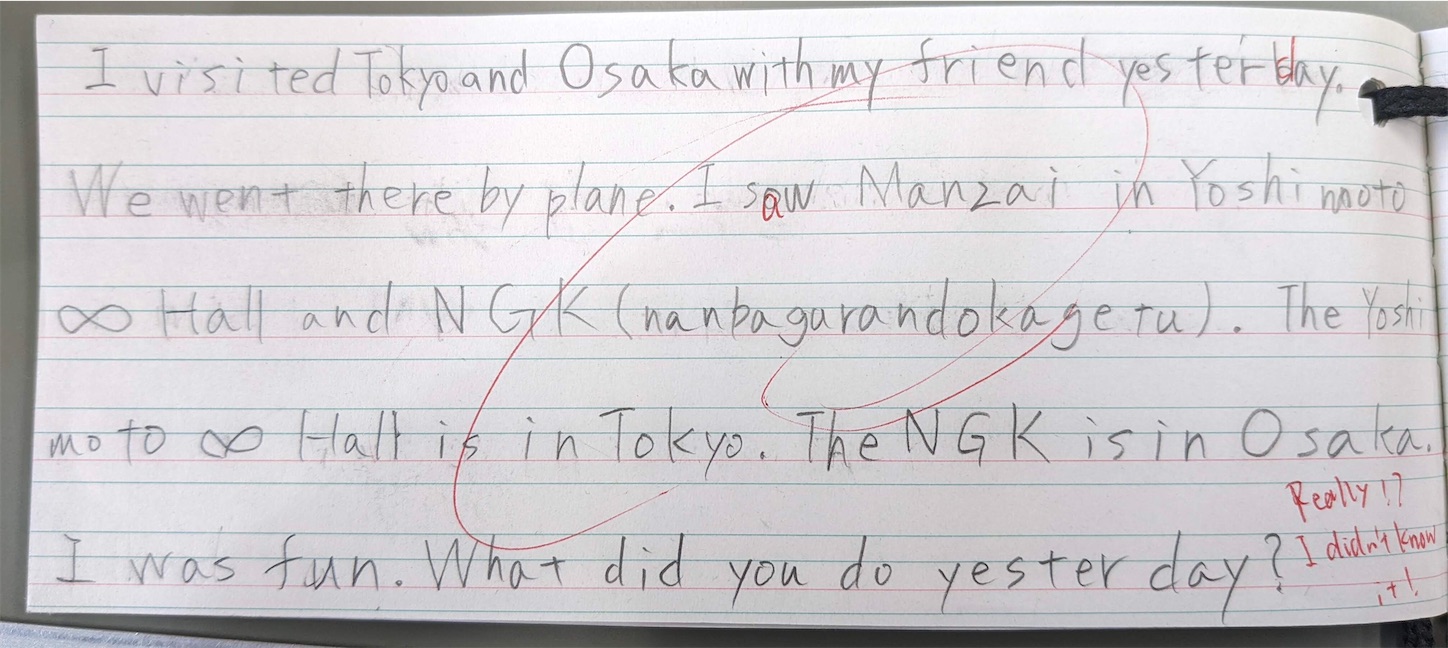 I visited Tokyo and Osaka with my friend yesterday.
We went there by plane. I saw Manzai in Yoshimoto
∞ Hall and NGK (nanbagurandokagetu). The Yoshi
moto ∞ Hall is in Tokyo. The NGK is in Osaka.
Really!?
I was fun. What did you do yesterday?
I didn't know
it!